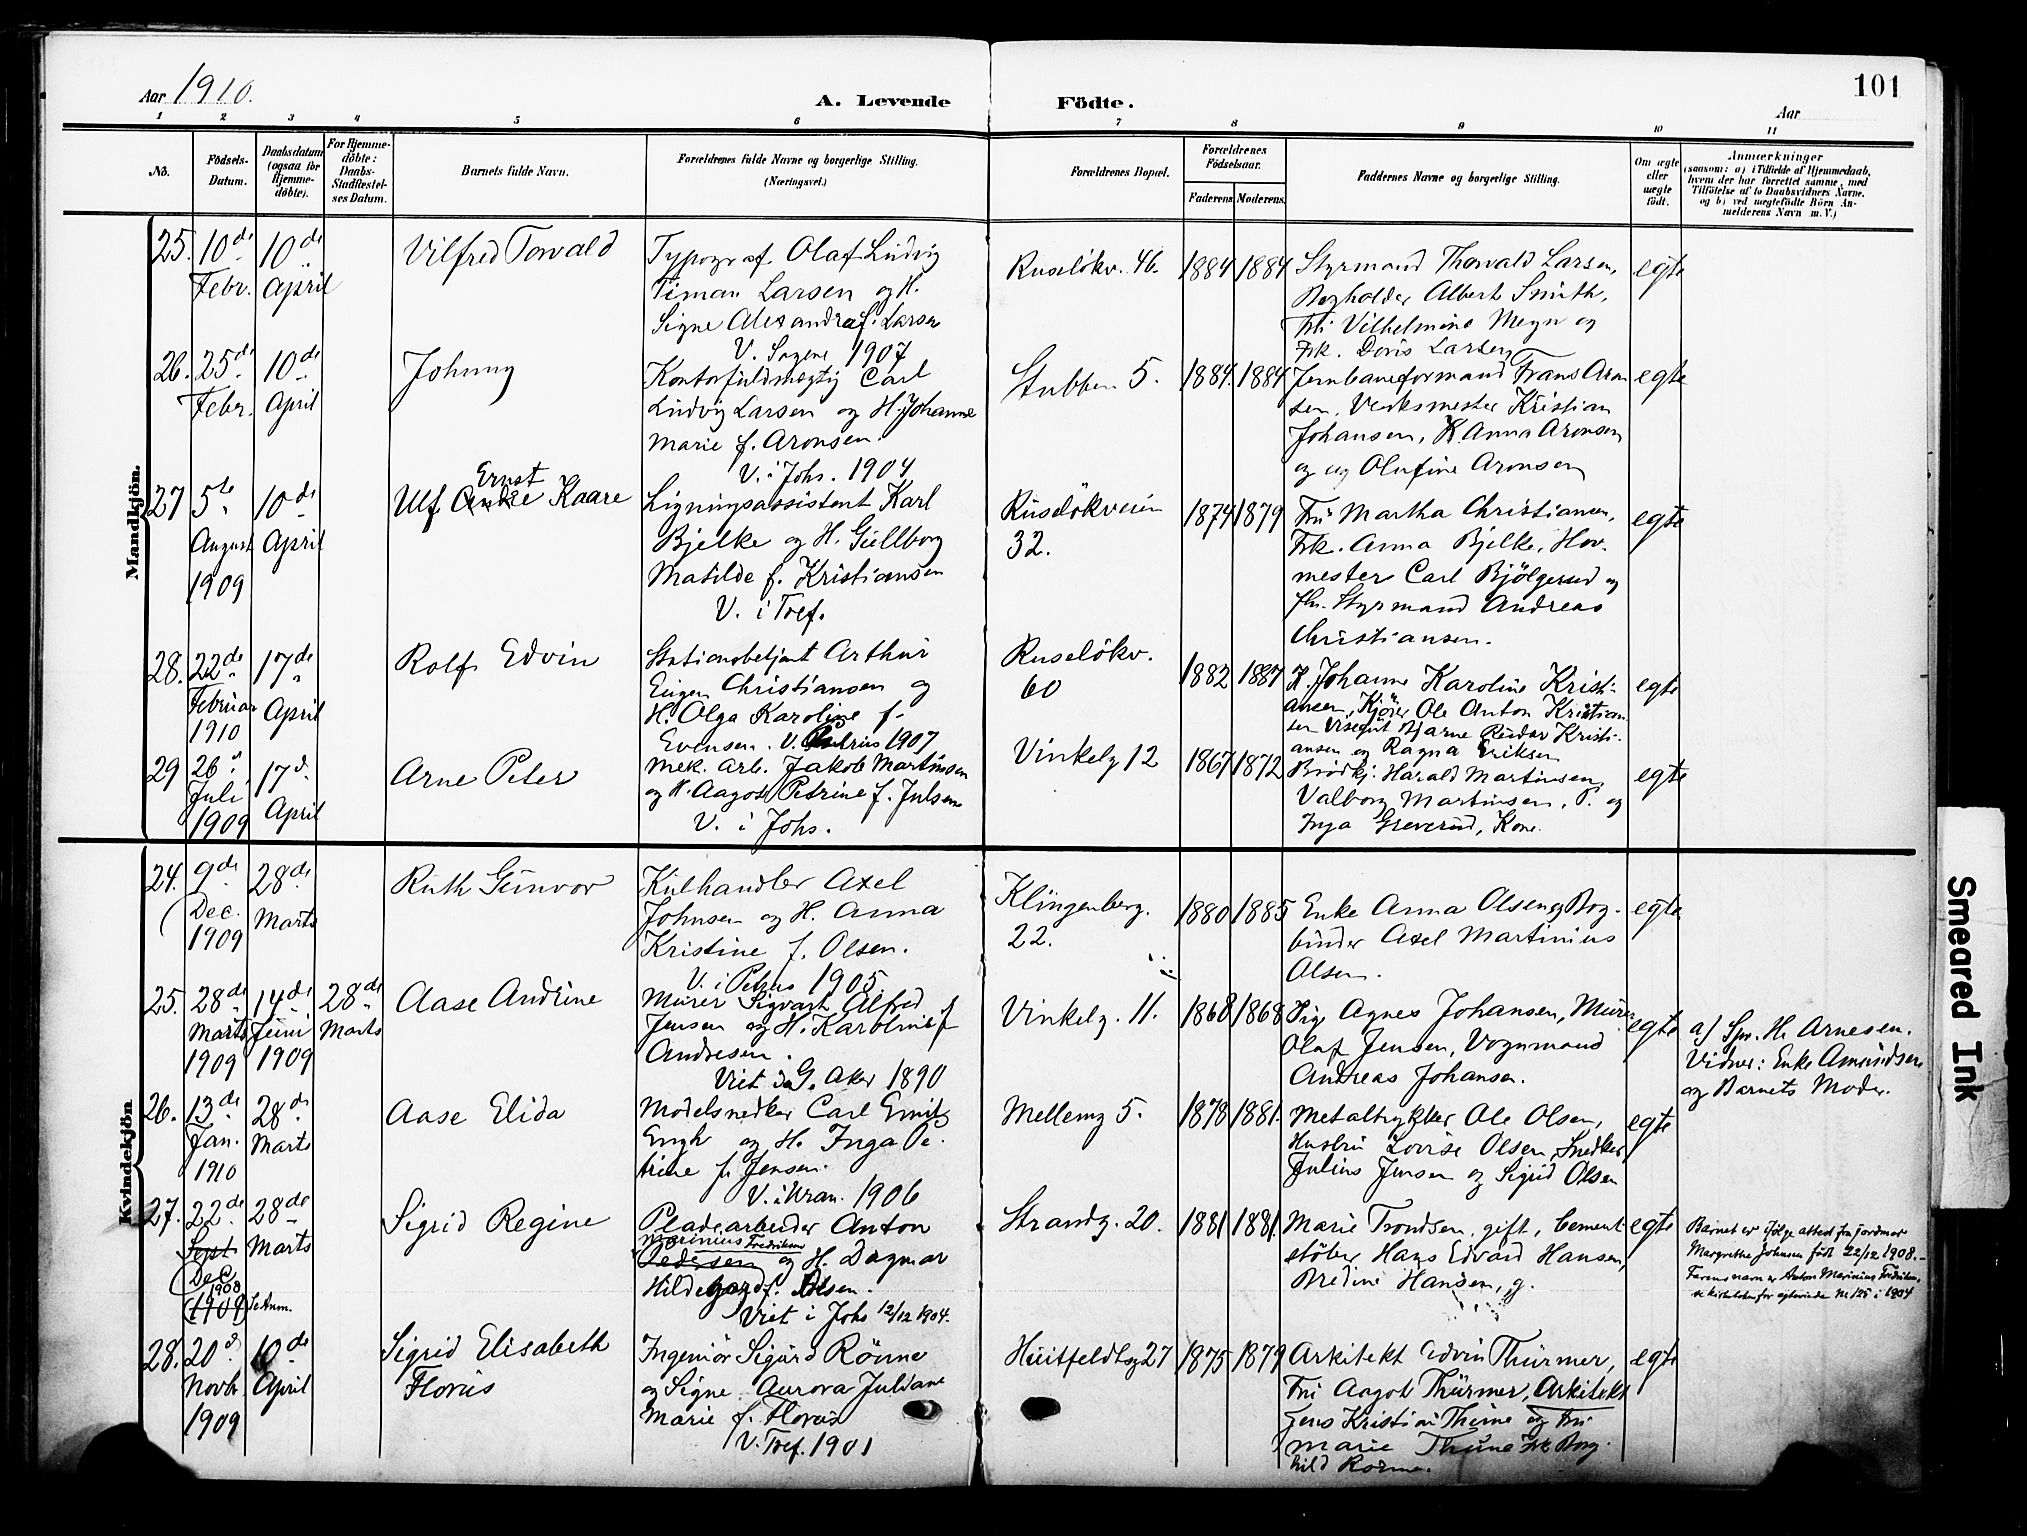 101
Aar 1910.
A. Levende Födte.
Aar
1 2 3 4 5 6 7 8 9 10 11
No.
Födsels-
Datum.
Daabsdatum
(ogsaa for
Hjemme-
döbte).
For Hjemme-
döbte:
Daabs-
Stadfæstel-
ses Datum.
Barnets fulde Navn.
Forældrenes fulde Navne og borgerlige Stilling.
(Næringsvei.)
Forældrenes Bopæl.
Forældrenes
Födselsaar.
Faderens Moderens.
Faddernes Navne og borgerlige Stilling.
Om ægte
eller
uægte
födt.
Anmærkninger
(saasom: a) i Tilfælde af Hjemmedaab,
hvem der har forrettet samme, med
Tilföielse af to Daabsvidners Navne.
og b) ved uægtefödte Börn An-
melderens Navn m. V.)
Mandkjön.
25. 10de
Febr.
10de
April
Vilfred Torvald
Typograf Olaf Ludvig
Timan Larsen og H.
Signe Alexandra f. Larsen
V. Sagene 1907
Ruselökv. 46.
1884 1884
Styrmand Thorvald Larsen,
Bogholder Albert Smith,
Frk. Doris Larsen
egte
26. 25de
Febr.
10de
April
Johnny
Kontorfuldmægtig Carl
Ludvig Larsen og H. Johanne
Marie f. Aronsen.
V. i Johs. 1904
Stubben 5.
1884. 1884
Jernbaneformand Frans Aron
sen, Verksmester Kristian
Johansen, H. Anna Aronsen
og ug Olufine Aronsen
egte
27 5te
August
1909
10de
April
Ernst
Ulf Andre Kaare
Ligningsassistent Karl
Bjelke og H. Gullborg
Matilde f. Kristiansen
V. i Tref.
Ruselökveien
32.
1874 1879
Fru Martha Christiansen,
Frk. Anna Bjelke, Hov-
mester Carl Bjölgerud og
fhv. Styrmand Andreas
Christiansen.
egte
28. 22de
Februar
1910
17de
April
Rolf Edvin
Stationsbetjent Arthur
Eugen Christiansen og
H. Olga Karoline f.
Evensen. V. Petrus 1907
Ruselökv.
60
1882 1887
H. Johanne Karoline Kristi-
ansen, Kjörer Ole Anton Kristian
sen Visegut Bjarne Reidar Kristi-
ansen og Ragna Eriksen
egte
29 26d
Juli
1909
17d.
April
Arne Peter
Mek. arb. Jakob Martinsen
og H. Aagot Petrine f. Julsen
V. i Johs.
Vinkelg 12
1867 1872
Brödkj. Harald Martinsen,
Valborg Martinsen, P. og
Inga Greverud, Kone.
egte
Kvindekjön
24. 9de
Dec.
1909
28de
Marts
Ruth Gunvor
Kulhandler Axel
Johnsen og H. Anna
Kristine f. Olsen.
V. i Petrus 1905
Klingenberg.
22.
1880 1885
Enke Anna Olsen og Bog-
binder Axel Martinius
Olsen.
egte
25. 28de
Marts
1909
14de
Juni
1909
28de
Marts
Aase Andrine
Murer Sigvart Alfred
Jensen og H. Karoline f
Andresen.
Viet i G. Aker 1890
Vinkelg. 11.
1868 1868
Pig. Agnes Johansen, Murer
Olaf Jensen, Vognmand
Andreas Johansen.
egte
a) Spr. H. Arnesen.
Vidner: Enke Amundsen
og Barnets Moder.
26. 13de
Jan.
1910
28de
Marts
Aase Elida
Modelsnedker Carl Emil
Engh og H. Inga Pe-
trine f. Jensen.
V. i Uran. 1906
Mellemg 5.
1878 1881.
Metaltrykker Ole Olsen,
Hustru Lovise Olsen, Snedker
Julius Jensen og Sigrid Olsen
egte
27. 22de
Sept
Dec
1908
(1909) Se Anm.
28de
Marts
Sigrid Regine
Pladearbeider Anton
Marinius Fredriksen
Pedersen og H. Dagmar
Hildegard f. Olsen.
Viet i Johs 12/12 1904.
Strandg. 20.
1881 1881.
Marie Trondsen, gift, Cement
stöber Hans Edvard Hansen,
Bredine Hansen, g.
egte
Barnet er ifölge attest fra Jordmor
Margrethe Johnsen födt 22/12 1908.
Farens navn er Anton Marinius Fredriksen
se kirkeboken for egteviede No 125 i 1904
28. 20d
Novbr
1909
10de
April
Sigrid Elisabeth
Florus
Ingeniör Sigurd Rönne
og Signe Aurora Juliane
Marie f. Florus
V. Tref. 1901
Huitfeldtsg 27
1875 1879
Arkitekt Edvin Thurmer,
Fru Aagot Thürmer, Arkitekt
Jens Kristian Thune og Fru
Marie Thune Frk Borg-
hild Rönne.
egte
Smeared Ink